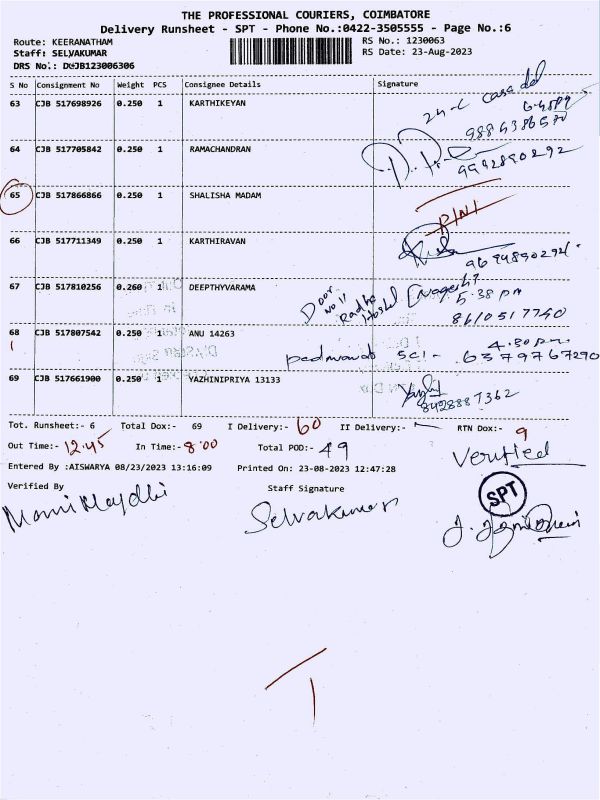 THE PROFESSIONAL COURIERS, COIMBATORE
Delivery Runsheet - SPT - Phone No.:0422-3505555 - Page No.:6
Route: KEERANATHAM RS No.: 1230063
Staff: SELVAKUMAR RS Date: 23-Aug-2023
DRS No.: DCJB123006306
S No Consignment No Weight PCS Consignee Details Signature
63 CJB 517698926 0.250 1 KARTHIKEYAN
24-C casa del
64 CJB 517705842 0.250 1 RAMACHANDRAN 9992890292
65 CJB 517866866 0.250 1 SHALISHA MADAM
66 CJB 517711349 0.250 1 KARTHIRAVAN
67 CJB 517810256 0.260 1 DEEPTHYVARAMA Door No 11 Radha Hostel
5.38 pm
8610517740
68 CJB 517807542 0.250 1 ANU 14263 4.30 pm
SCI - 6379767290
69 CJB 517661900 0.250 1 YAZHINIPRIYA 13133
8428887362
Tot. Runsheet:- 6 Total Dox:- 69 I Delivery:- 60 II Delivery:- RTN Dox:- 9
Out Time:- 12.45 In Time:- 8.00 Total POD:- 49 Verified
Entered By :AISWARYA 08/23/2023 13:16:09 Printed On: 23-08-2023 12:47:28
Verified By Staff Signature SPT
Selvakumar